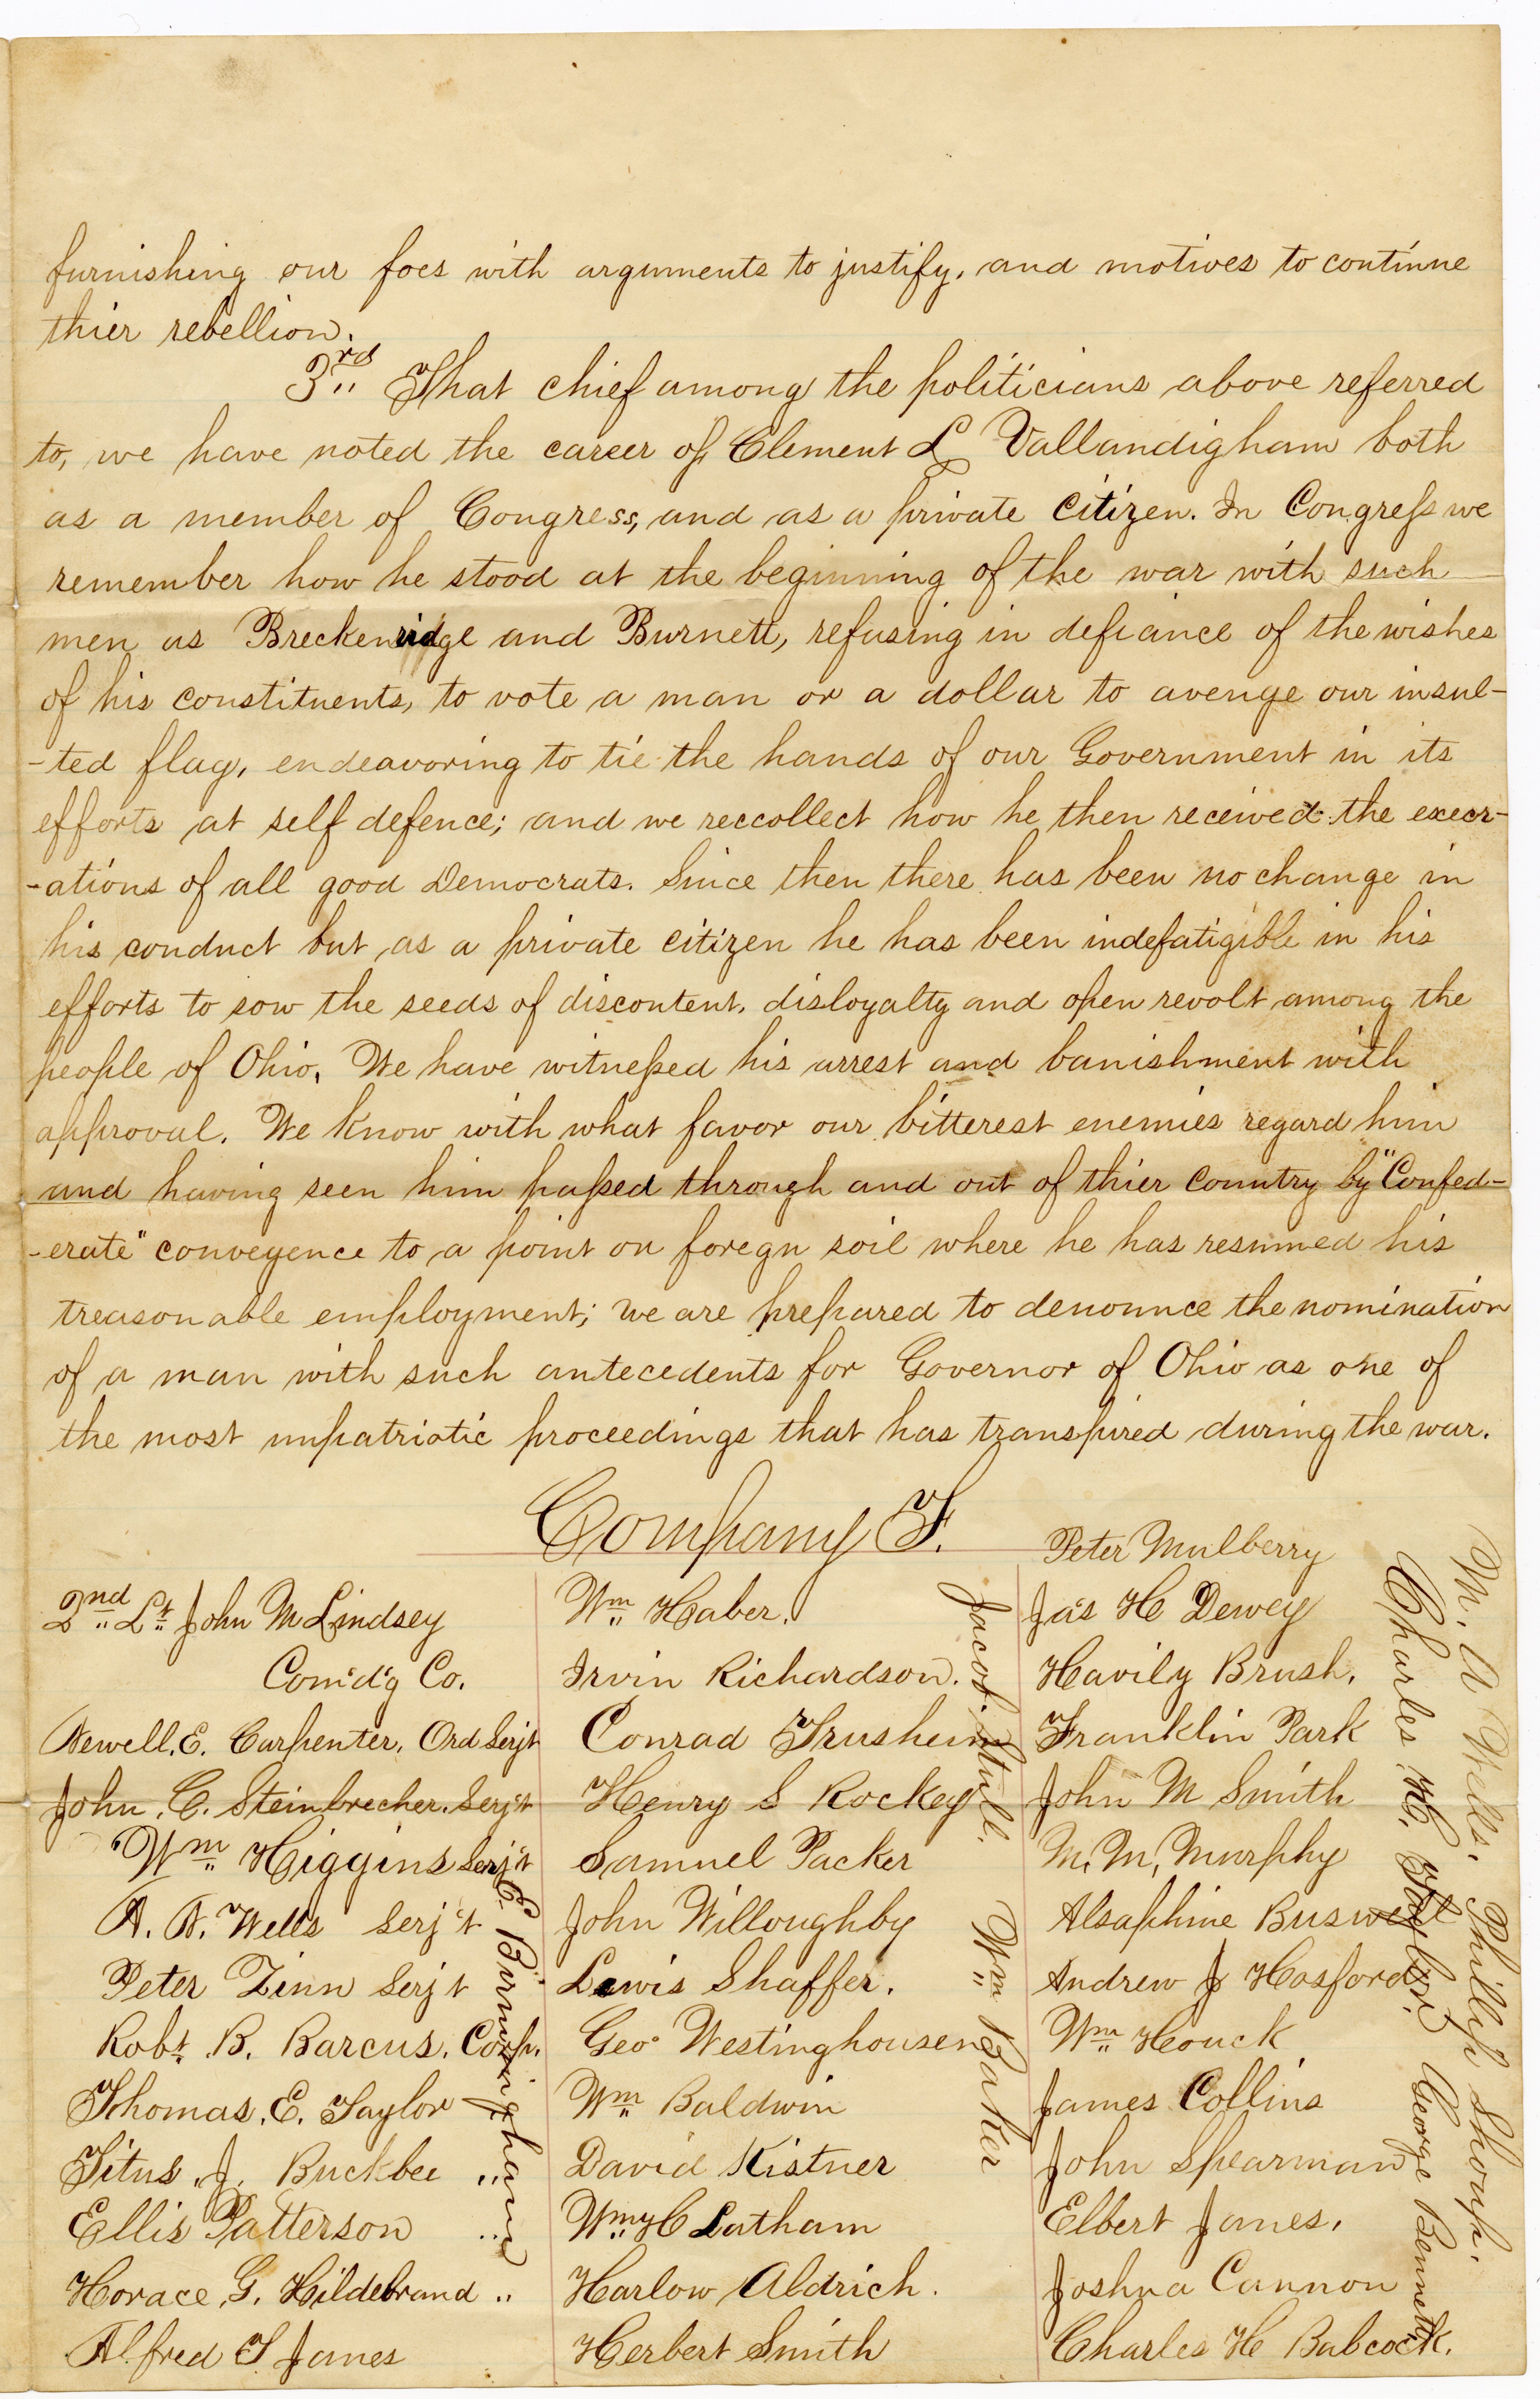 furnishing our foes with arguments to justify, and motives to continue
thier rebellion.
3rd That chief among the politicians above referred
to, we have noted the career of Clement L Vallandigham both
as a member of Congress, and as a private citizen. In Congress we
remember how he stood at the beginning of the war with such
men as Breckenridge and Burnett, refusing in defiance of the wishes
of his constituents, to vote a man or a dollar to avenge our insul-
-ted flag, endeavoring to tie the hands of our Government in its
efforts at self defence; and we reccollect how he then received the execr-
-ations of all good Democrats. Since then there has been no change in
his conduct but as a private citizen he has been indefatigible in his
efforts to sow the seeds of discontent, disloyalty and open revolt among the
people of Ohio. We have witnessed his arrest and banishment with
approval. We know with what favor our bitterest enemies regard him
and having seen him passed through and out of thier country by "Confed-
-erate" conveyence to a point on foregn soil where he has resumed his
treasonable employment; we are prepared to denounce the nomination
of a man with such antecedents for Governor of Ohio as one of
the most unpatriotic proceedings that has transpired during the war.
Company F.
2nd Lt John M Lindsey
Com'd'g Co.
Newell. E. Carpenter, Ord Serjt
John. C. Steinbrecher. Serj't
Wm Higgins Serj't
A. N. Wells Serj't
Peter Zinn Serj't
Robt. B. Barcus. Corp.
Thomas. E. Taylor "
Titus. J. Buckbee "
Ellis Patterson "
Horace. G. Hildebrand "
Alfred S Janes
E. Burmingham
Wm Haber.
Irvin Richardson.
Conrad Trusheim
Henry S Rockey
Samuel Packer
John Willoughby
Lewis Shaffer.
Geo Westinghousen
Wm Baldwin
David Kistner
Wm H C Latham
Harlow Aldrich.
Herbert Smith
Jacob Stull.
Wm Baker
Peter Mulberry
Jas H Dewey
Havily Brush.
Franklin Park
John M Smith
M. M. Murphy
Alsaphine Buswell
Andrew J Hosford
Wm Houck
James Collins
John Spearman
Elbert Janes.
Joshua Cannon
Charles H Babcock.
Charles H. Gaylord
George Bennett.
M. A Wells.
Phillip Shoup.